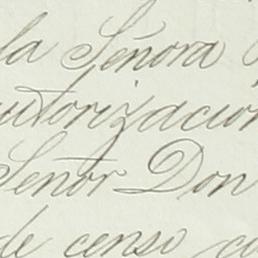 la Señora
autorizacion
Señor Don
de censo co